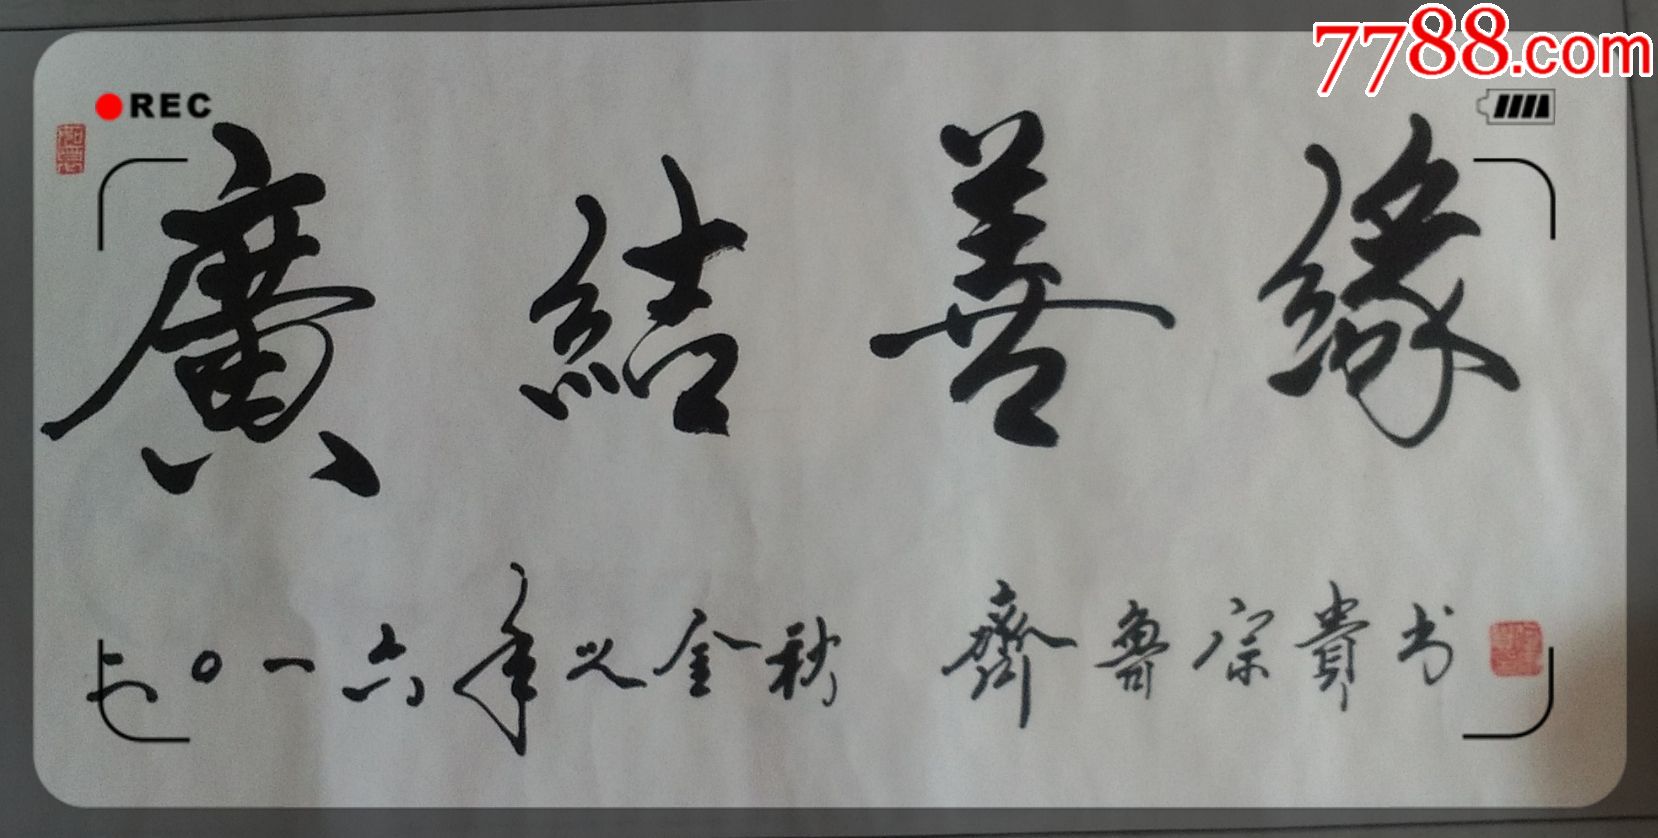 7788.com
REC
廣結善緣
二〇一六年之金秋 齊魯宗貴书